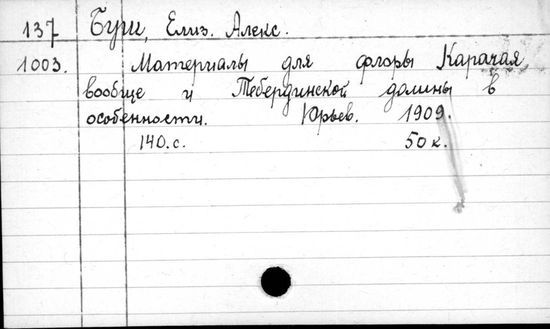 137 Буш, Елиз. Алекс.
1003. Материалы для флоры Карачая
вообще и Тебердинской долины в
особенности. Юрьев. 1909.
140.с. 50 к.